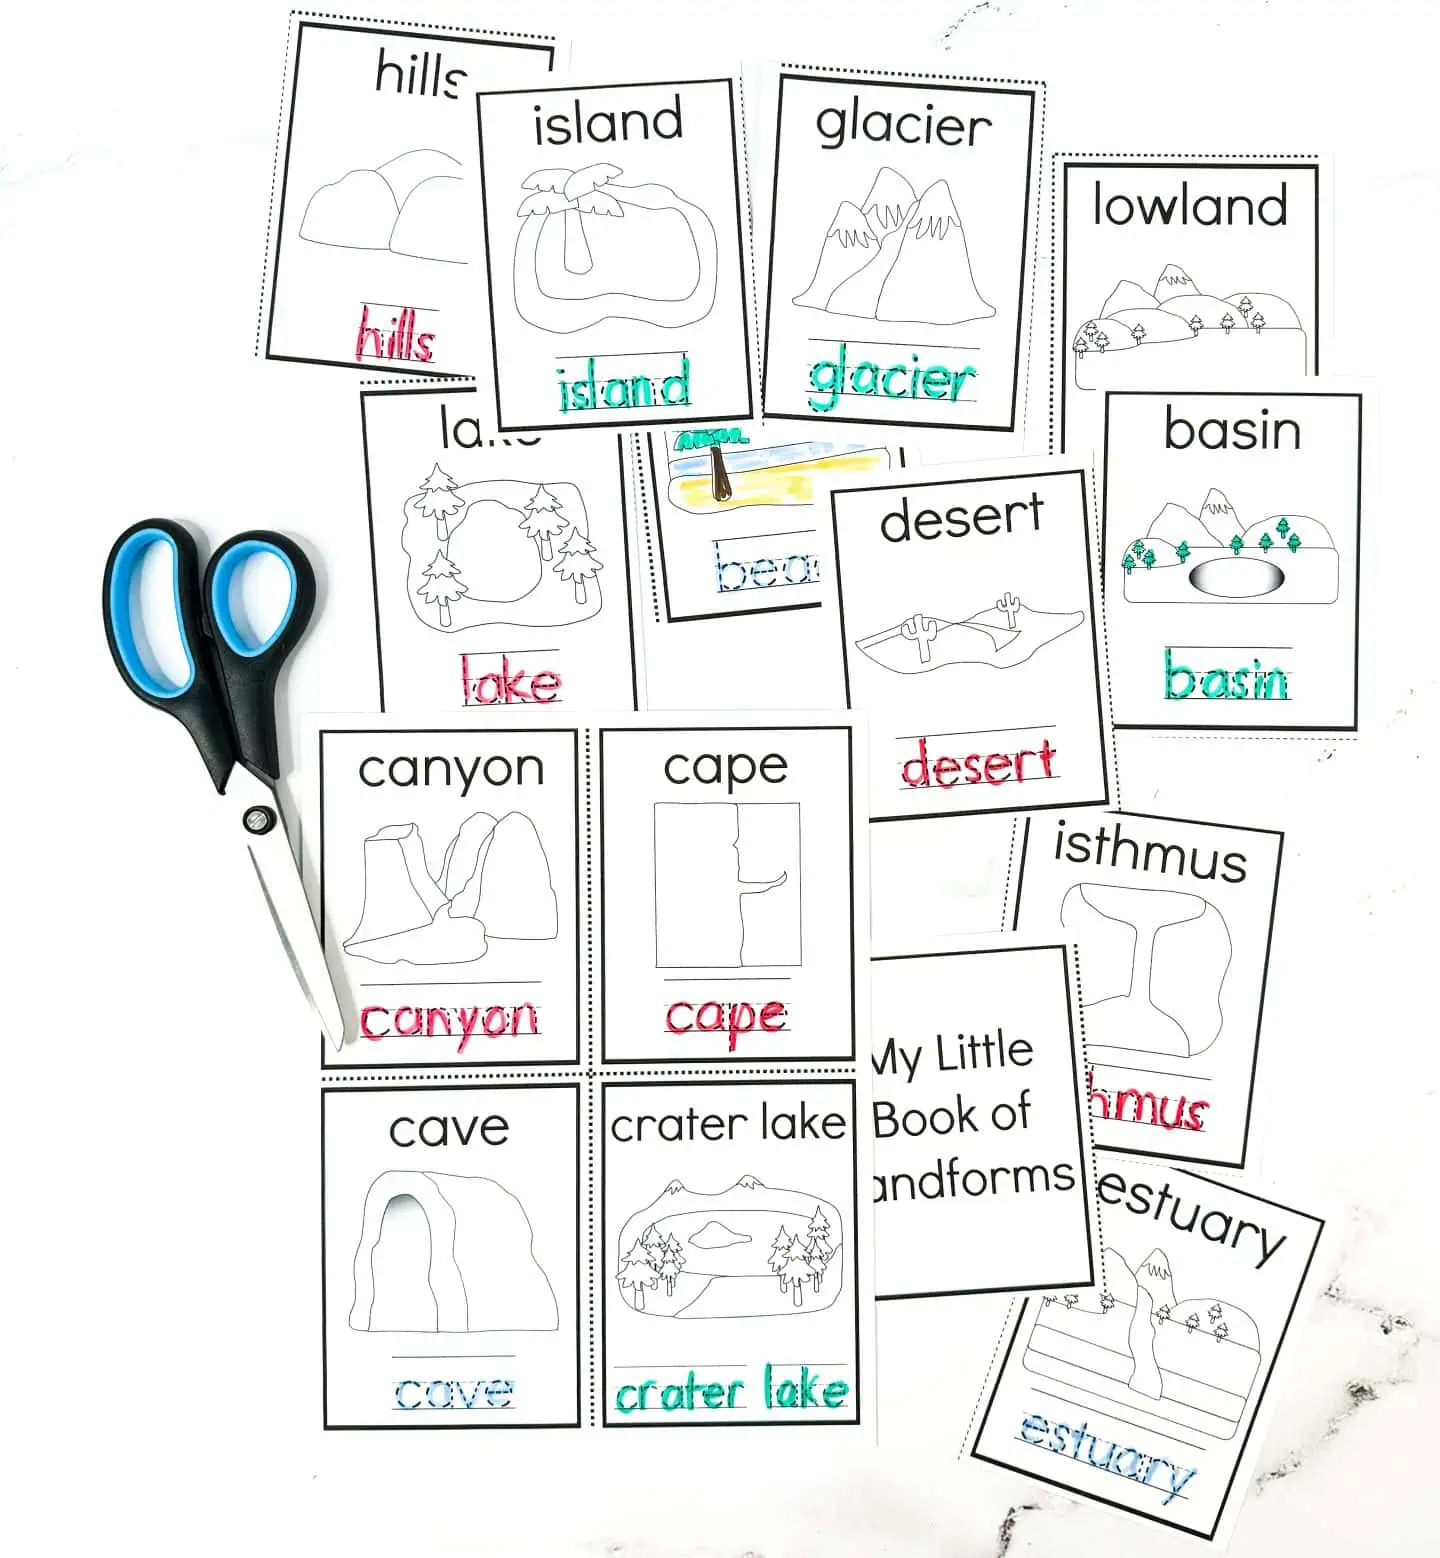 hills
hills
island
island
glacier
glacier
lowland
lake
lake
bea
desert
desert
basin
basin
canyon
canyon
cape
cape
isthmus
hmus
My Little
Book of
andforms
cave
cave
crater lake
crater lake
estuary
estuary